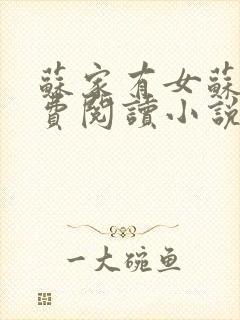 蘇家有女蘇
費閱讀小説
一大碗鱼